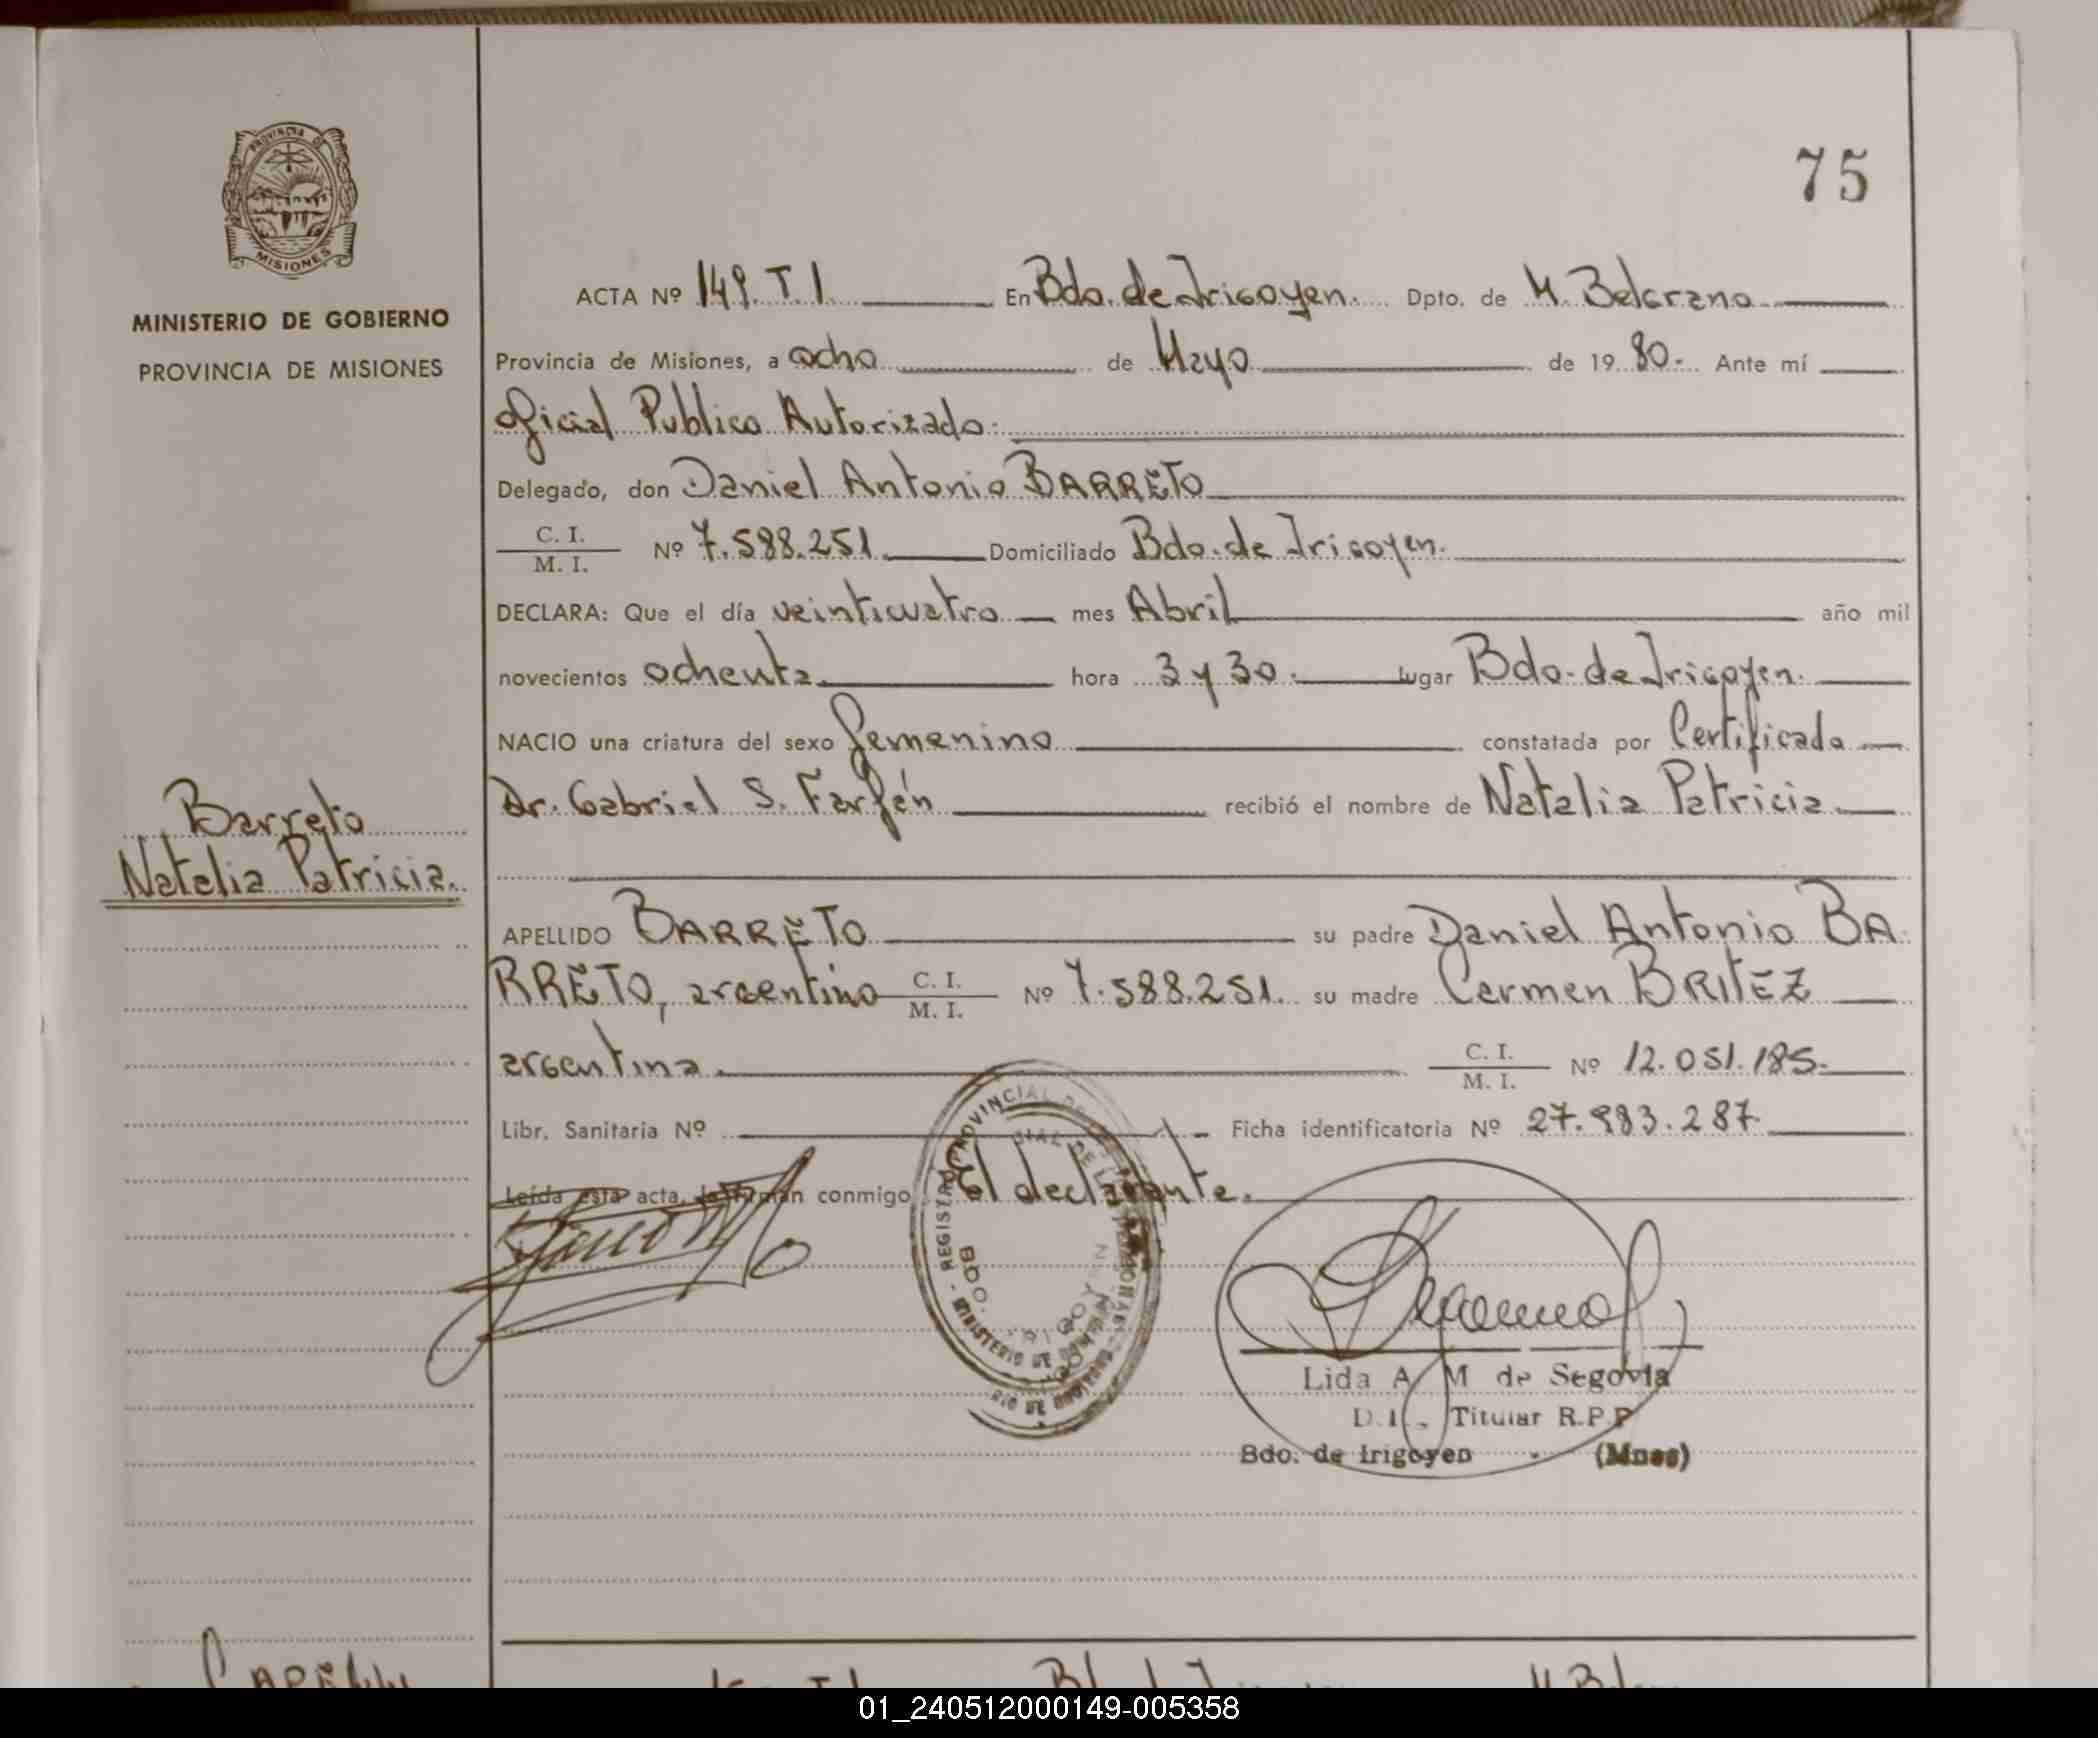 PROVINCIA D
MISIONES
MINISTERIO DE GOBIERNO
PROVINCIA DE MISIONES
75
ACTA Nº 149. T. I. En Bdo. de Irigoyen. Dpto. de M. Belgrano
Provincia de Misiones, a ocho de Mayo de 19 80. Ante mí
Oficial Publico Autorizado.
Delegado, don Daniel Antonio BARRETO
C. I.
M. I.
Nº 7.588.251. Domiciliado Bdo. de Irigoyen.
DECLARA: Que el día veinticuatro mes Abril año mil
novecientos ochenta. hora 3 y 30. lugar Bdo. de Irigoyen.
NACIO una criatura del sexo femenino constatada por Certificado
Dr. Gabriel S. Farfán recibió el nombre de Natalia Patricia
Barreto
Natalia Patricia.
APELLIDO BARRETO su padre Daniel Antonio BA
RRETO, argentino C. I. Nº 7.588.251. su madre Carmen BRITEZ
M. I.
argentina. C. I. Nº 12.051.185.
M. I.
Libr. Sanitaria Nº Ficha identificatoria Nº 27.983.287
Leída esta acta, la firman conmigo El declarante.
REGISTRO PROVINCIAL DE
MINISTERIO DE
BDO.
Lida A. M de Segovia
D.I. Titular R.P.P
Bdo. de Irigoyen (Mnes)
01_240512000149-005358